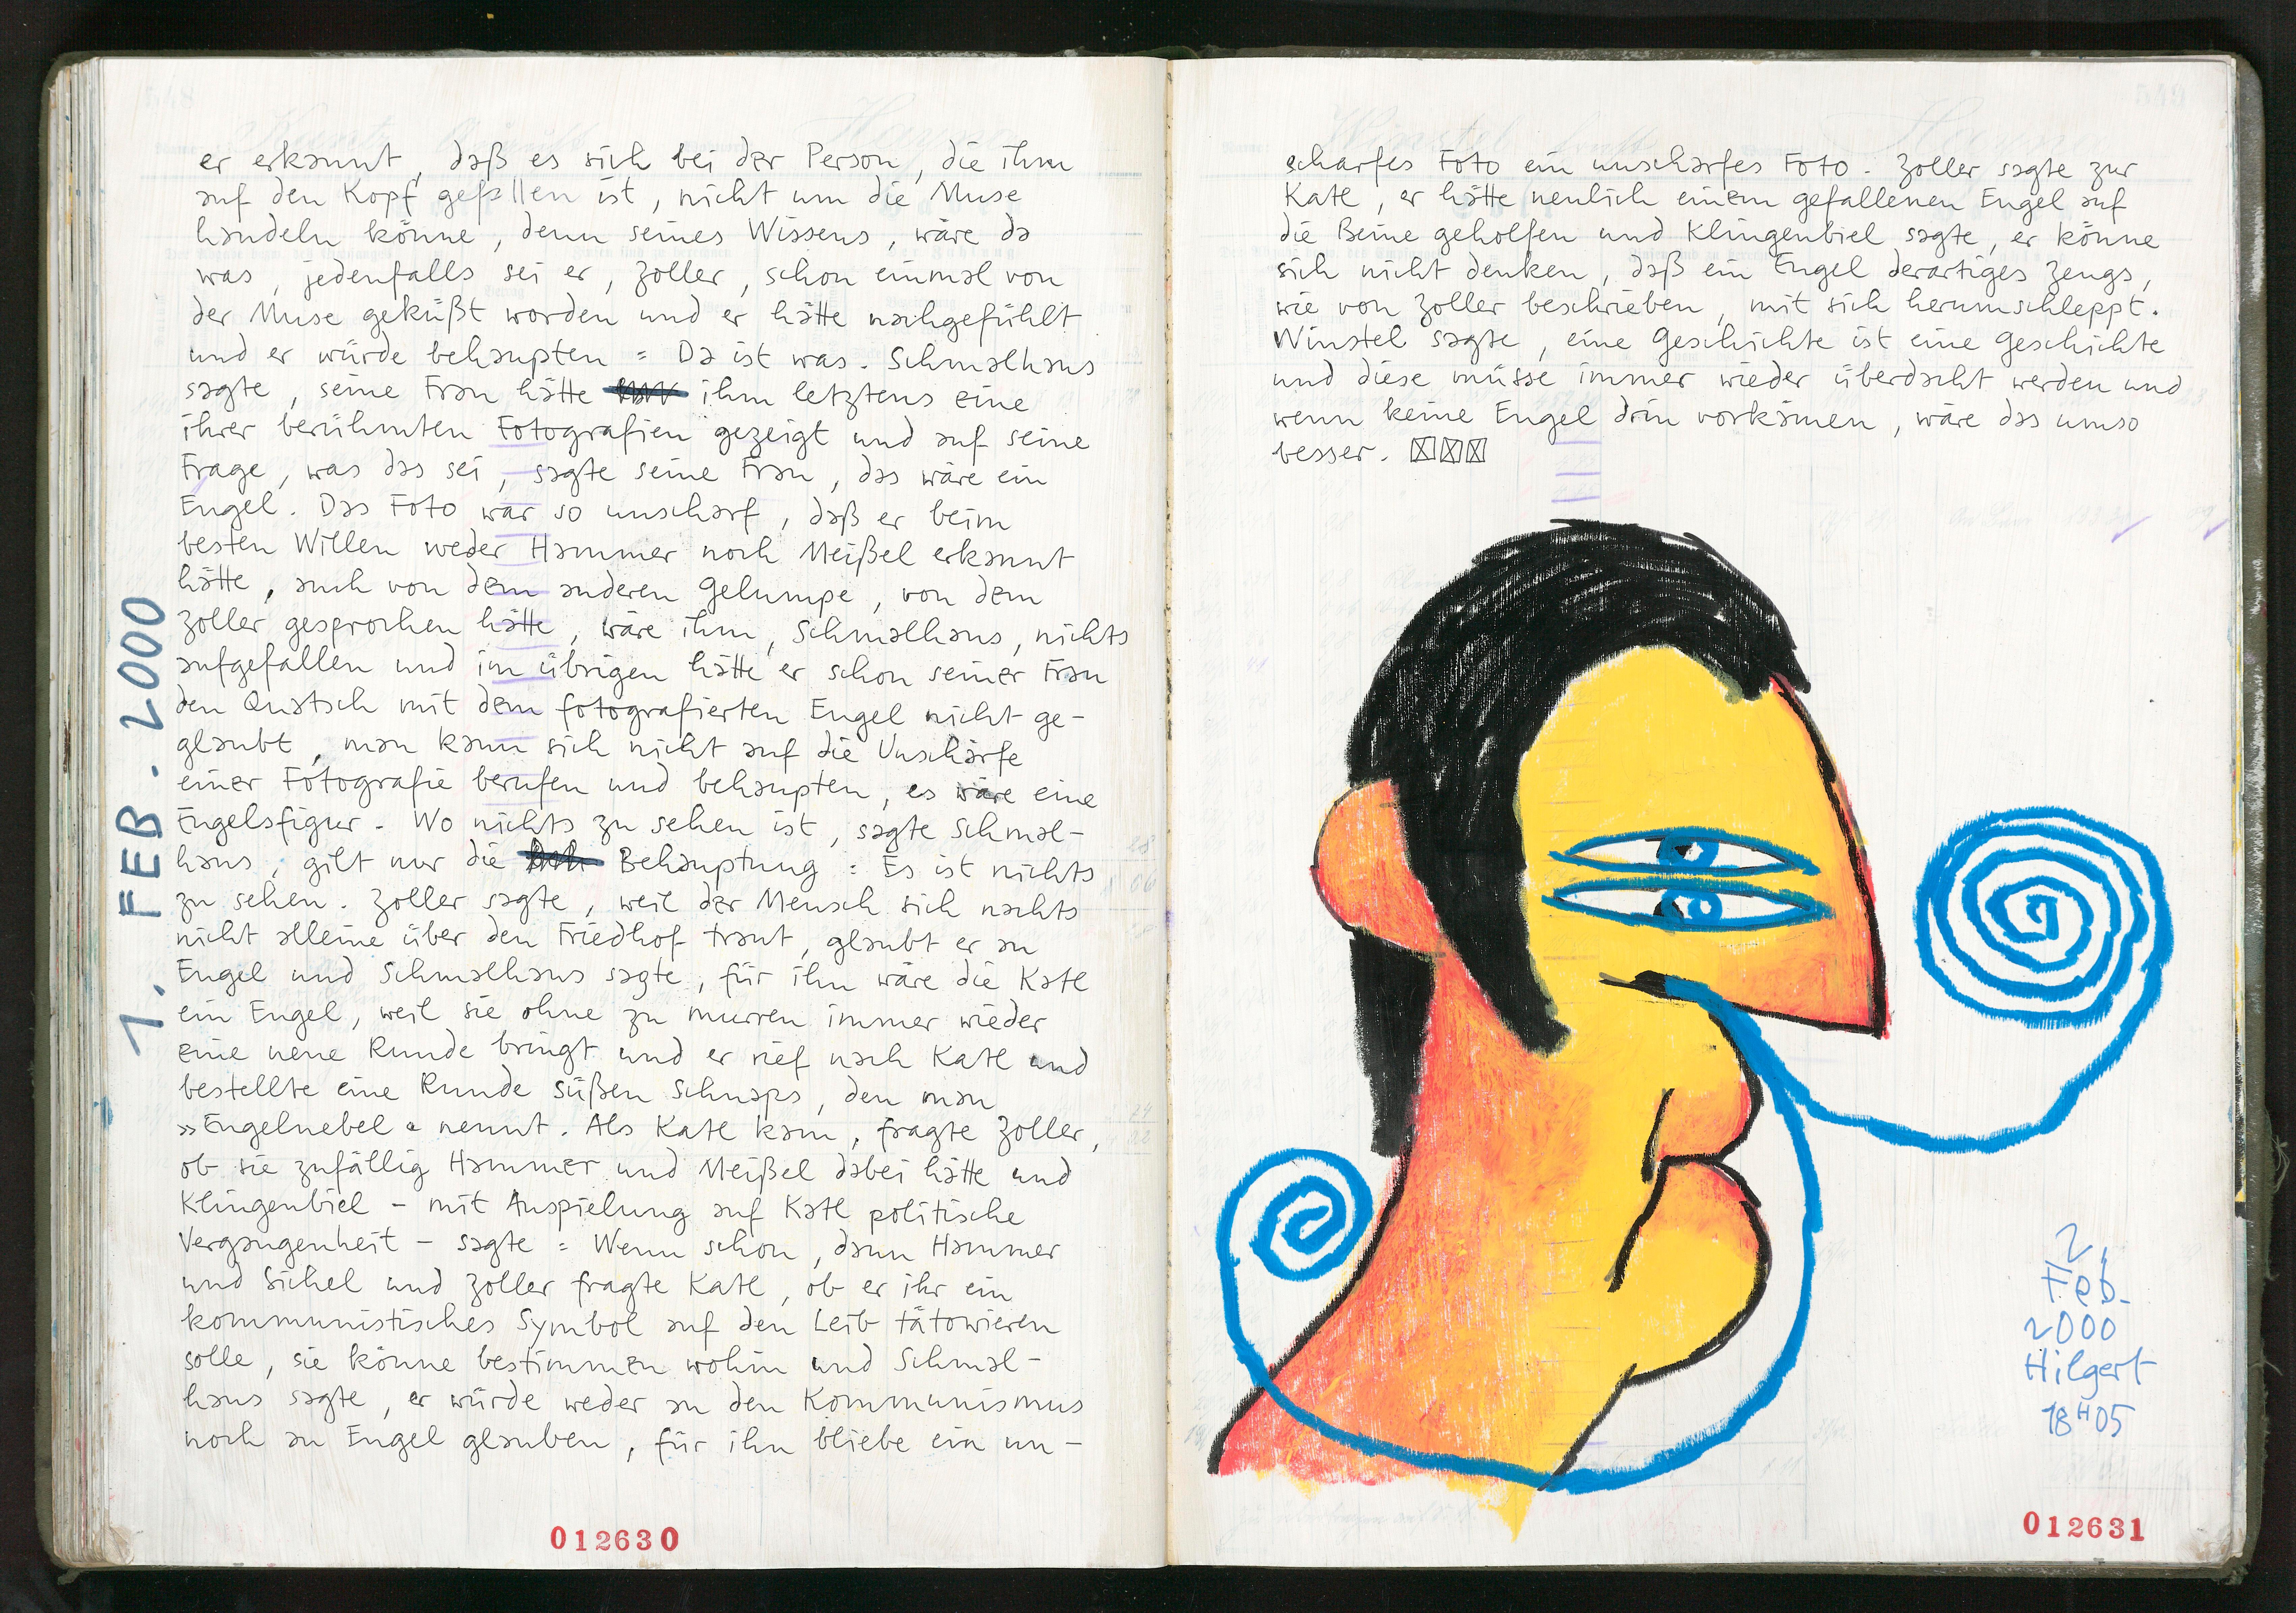 1. FEB. 2000
er erkannt, daß es sich bei der Person, die ihm
auf den Kopf gefallen ist, nicht um die Muse
handeln könne, denn seines Wissens, wäre da
was, jedenfalls sei er, Zoller, schon einmal von
der Muse geküßt worden und er hätte nachgefühlt
und er würde behaupten: Da ist was. Schmalhaus
sagte, seine Frau hätte ihm letztens eine
ihrer berühmten Fotografien gezeigt und auf seine
Frage, was das sei, sagte seine Frau, das wäre ein
Engel. Das Foto war so unscharf, daß er beim
besten Willen weder Hammer noch Meißel erkannt
hätte, auch von dem anderen Gelumpe, von dem
Zoller gesprochen hätte, wäre ihm, Schmalhaus, nichts
aufgefallen und im übrigen hätte er schon seiner Frau
den Quatsch mit dem fotografierten Engel nicht ge-
glaubt, man kann sich nicht auf die Unschärfe
einer Fotografie berufen und behaupten, es wäre eine
Engelsfigur. Wo nichts zu sehen ist, sagte Schmal-
haus, gilt nur die Behauptung: Es ist nichts
zu sehen. Zoller sagte, weil der Mensch sich nachts
nicht alleine über den Friedhof traut, glaubt er an
Engel und Schmalhaus sagte, für ihn wäre die Katl
ein Engel, weil sie ohne zu murren immer wieder
eine neue Runde bringt und er rief nach Katl und
bestellte eine Runde süßen Schnaps, den man
»Engelnebel« nennt. Als Katl kam, fragte Zoller,
ob sie zufällig Hammer und Meißel dabei hätte und
Klingenbiel – mit Anspielung auf Katl politische
Vergangenheit – sagte: Wenn schon, dann Hammer
und Sichel und Zoller fragte Katl, ob er ihr ein
kommunistisches Symbol auf den Leib tätowieren
solle, sie könne bestimmen wohin und Schmal-
haus sagte, er würde weder an den Kommunismus
noch an Engel glauben, für ihn bliebe ein un-
012630
scharfes Foto ein unscharfes Foto. Zoller sagte zur
Katl, er hätte neulich einem gefallenen Engel auf
die Beine geholfen und Klingenbiel sagte, er könne
sich nicht denken, daß ein Engel derartiges Zeugs,
wie von Zoller beschrieben, mit sich herumschleppt.
Winstel sagte, eine Geschichte ist eine Geschichte
und diese müsse immer wieder überdacht werden und
wenn keine Engel drin vorkämen, wäre das umso
besser.
2.
Feb.
2000
Hilgert
18H05
012631